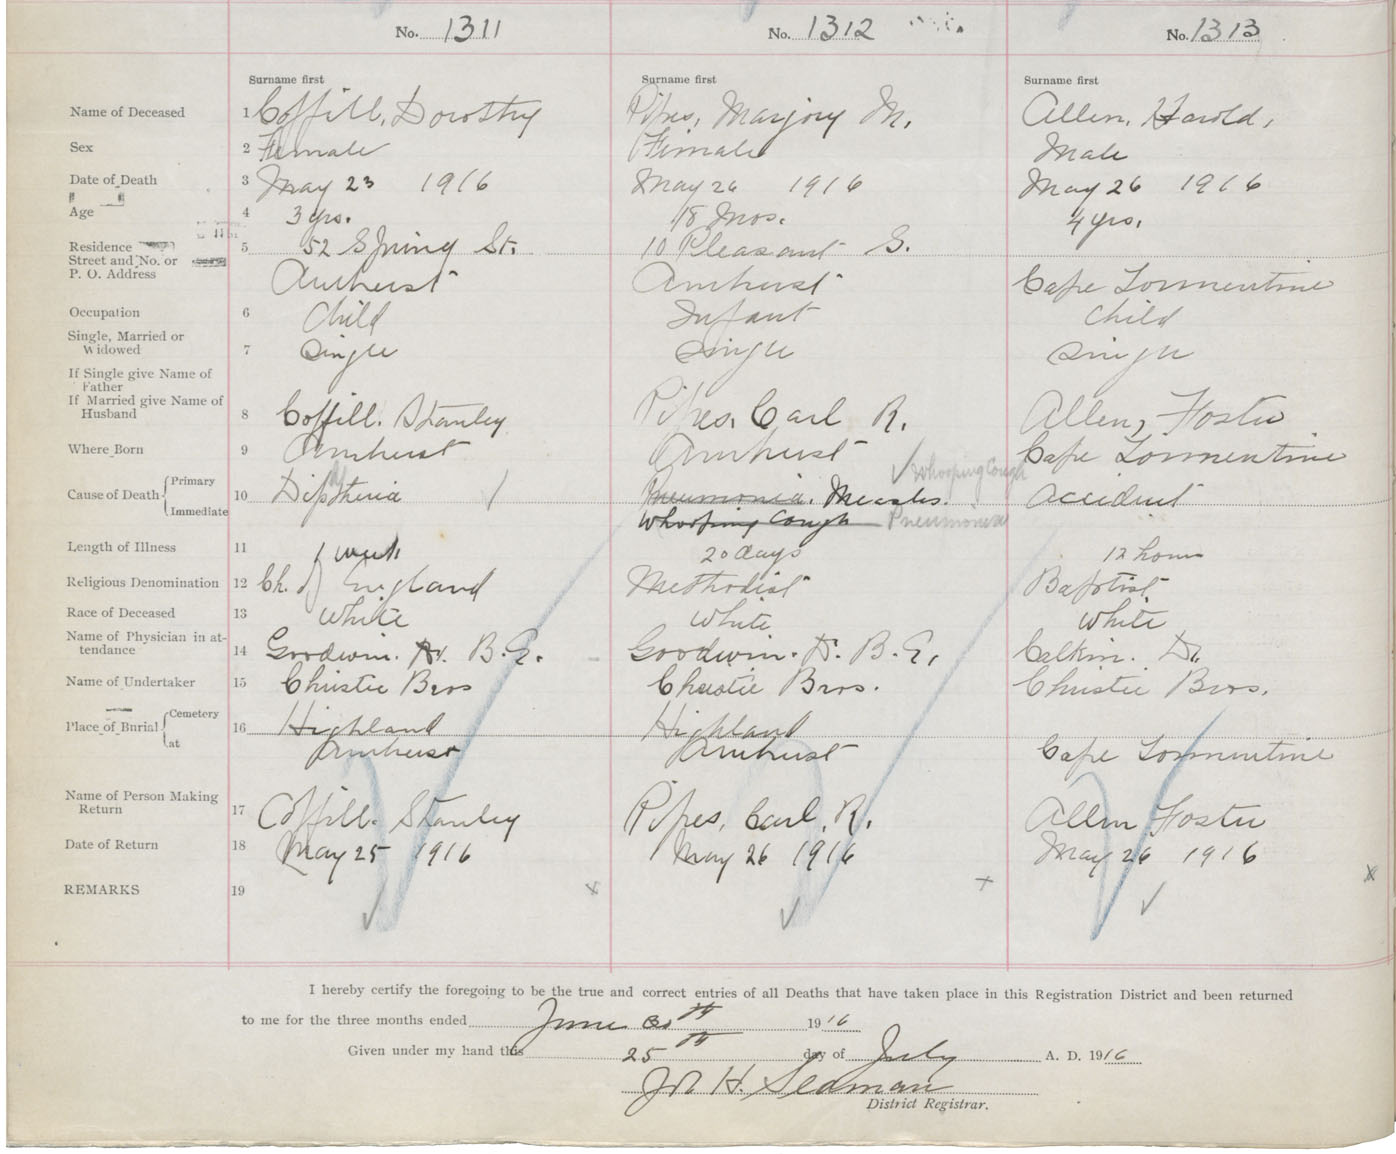 No. 1311 No. 1312 No. 1313
Surname first Surname first Surname first
Name of Deceased 1 Coffill, Dorothy Pipes, Marjory M. Allen, Harold,
Sex 2 Female Female Male
Date of Death 3 May 23 1916 May 26 1916 May 26 1916
Age 4 3 yrs. 18 Mos. 4 yrs.
Residence 5 52 Spring St. 10 Pleasant S.
Street and No. or
P. O. Address Amherst Amherst Cape Tormentine
Occupation 6 Child Infant Child
Single, Married or
Widowed 7 Single Single Single
If Single give Name of
Father
If Married give Name of
Husband 8 Coffill. Stanley Pipes, Carl R. Allen, Foster
Where Born 9 Amherst Amherst Cape Tormentine
Whooping Cough
Cause of Death Primary 10 Diptheria Pneumonia. Measles. Accident
Immediate Whooping Cough Pneumonia
Length of Illness 11 1 week 20 days 12 hours
Religious Denomination 12 Ch. of England Methodist Baptist
Race of Deceased 13 White White White
Name of Physician in at-
tendance 14 Goodwin. Dr. B. E. Goodwin. Dr. B. E. Calkin. Dr.
Name of Undertaker 15 Christie Bros Christie Bros. Christie Bros.
Place of Burial Cemetery 16 Highland Highland
at Amherst Amherst Cape Tormentine
Name of Person Making
Return 17 Coffill. Stanley Pipes, Carl. R. Allen Foster
Date of Return 18 May 25 1916 May 26 1916 May 26 1916
REMARKS 19 x + x
I hereby certify the foregoing to be the true and correct entries of all Deaths that have taken place in this Registration District and been returned
to me for the three months ended June 30th 1916
Given under my hand this 25th day of July A. D. 1916
H. Seaman
District Registrar.